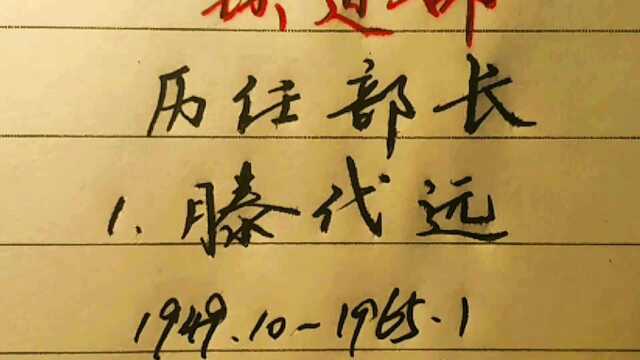 铁道部
历任部长
1.滕代远
1949.10~1965.1